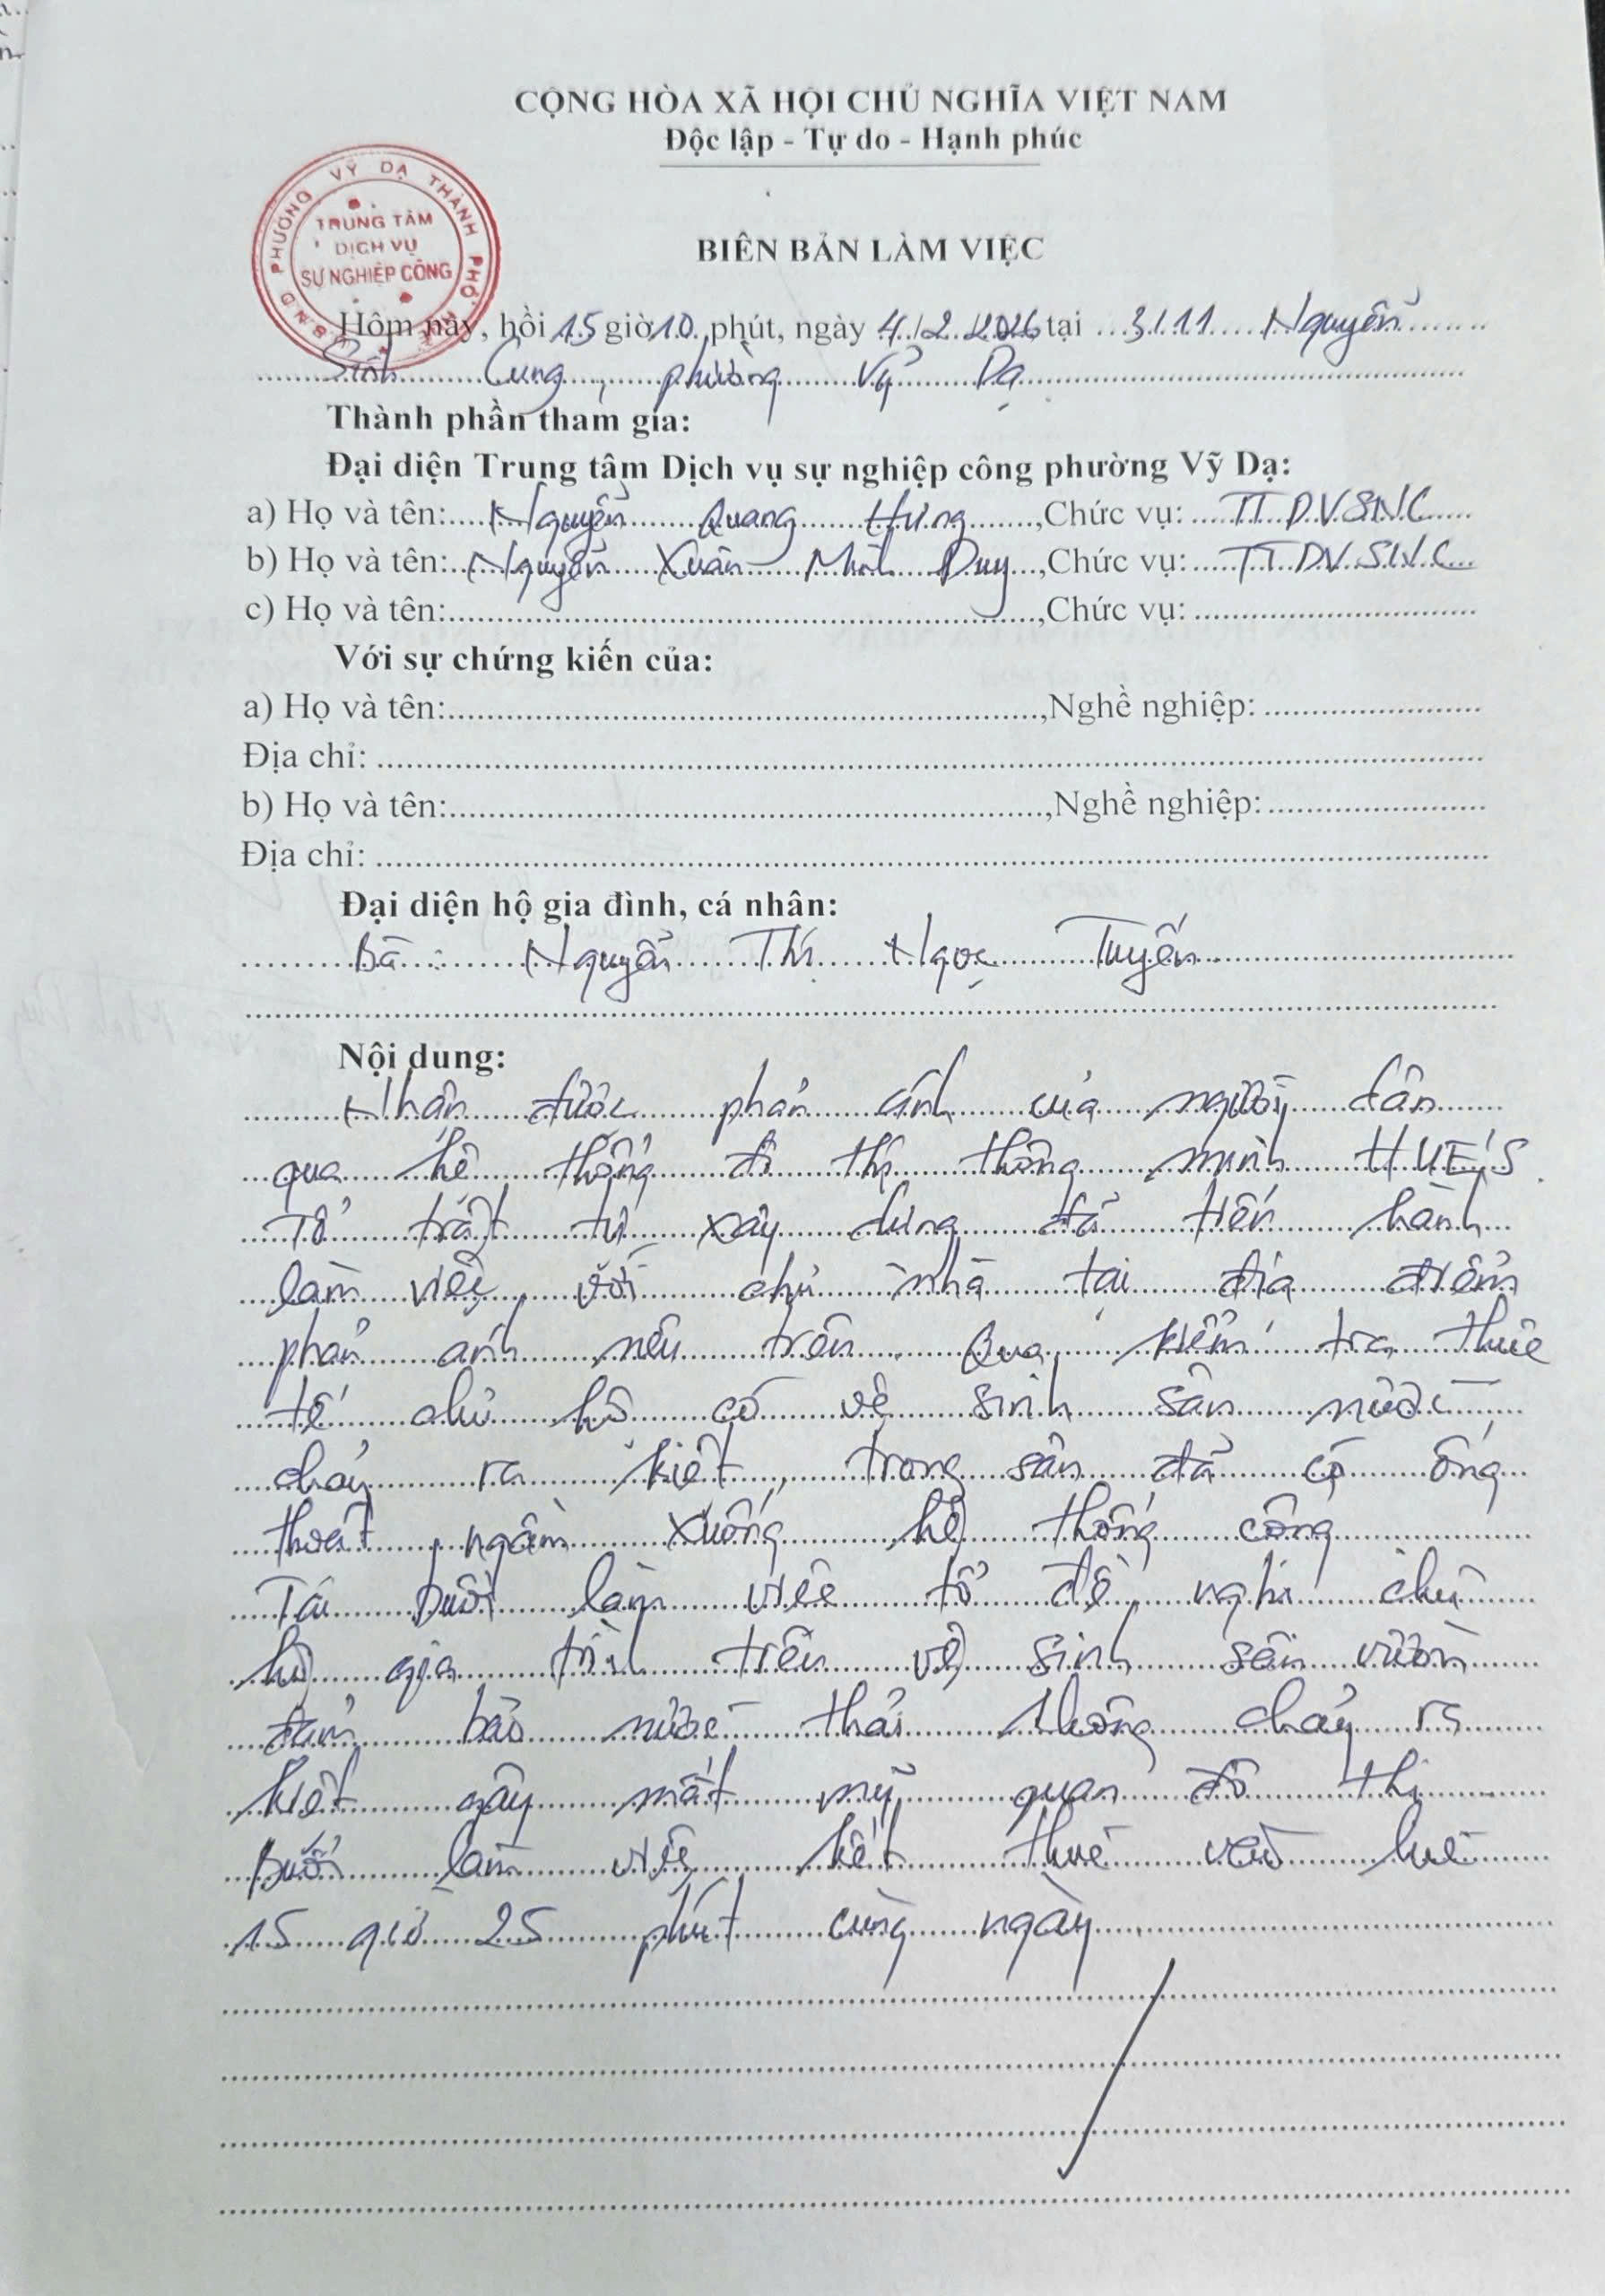 CỘNG HÒA XÃ HỘI CHỦ NGHĨA VIỆT NAM
Độc lập - Tự do - Hạnh phúc
U.B.N.D PHƯỜNG VỸ DẠ THÀNH PHỐ HUẾ
TRUNG TÂM
DỊCH VỤ
SỰ NGHIỆP CÔNG
BIÊN BẢN LÀM VIỆC
Hôm nay, hồi 15 giờ 10 phút, ngày 4/2/2026 tại 3/11 Nguyễn
Sinh Cung, phường Vỹ Dạ
Thành phần tham gia:
Đại diện Trung tâm Dịch vụ sự nghiệp công phường Vỹ Dạ:
a) Họ và tên: Nguyễn Quang Hưng, Chức vụ: TT DVSNC
b) Họ và tên: Nguyễn Xuân Minh Duy, Chức vụ: TT DVSNC
c) Họ và tên:, Chức vụ:
Với sự chứng kiến của:
a) Họ và tên:, Nghề nghiệp:
Địa chỉ:
b) Họ và tên:, Nghề nghiệp:
Địa chỉ:
Đại diện hộ gia đình, cá nhân:
Bà: Nguyễn Thị Ngọc Tuyến
Nội dung:
Nhận được phản ánh của người dân
qua hệ thống đô thị thông minh HUE'S.
Tổ trật tự xây dựng đã tiến hành
làm việc với chủ nhà tại địa điểm
phản ánh nêu trên. Qua kiểm tra thực
tế chủ hộ có vệ sinh sân nước
chảy ra kiệt, trong sân đã có ống
thoát ngầm xuống hệ thống cống
Tại buổi làm việc tổ đề nghị chủ
hộ gia đình trên vệ sinh sân vườn
đảm bảo nước thải không chảy ra
kiệt gây mất mỹ quan đô thị
Buổi làm việc kết thúc vào lúc
15 giờ 25 phút cùng ngày